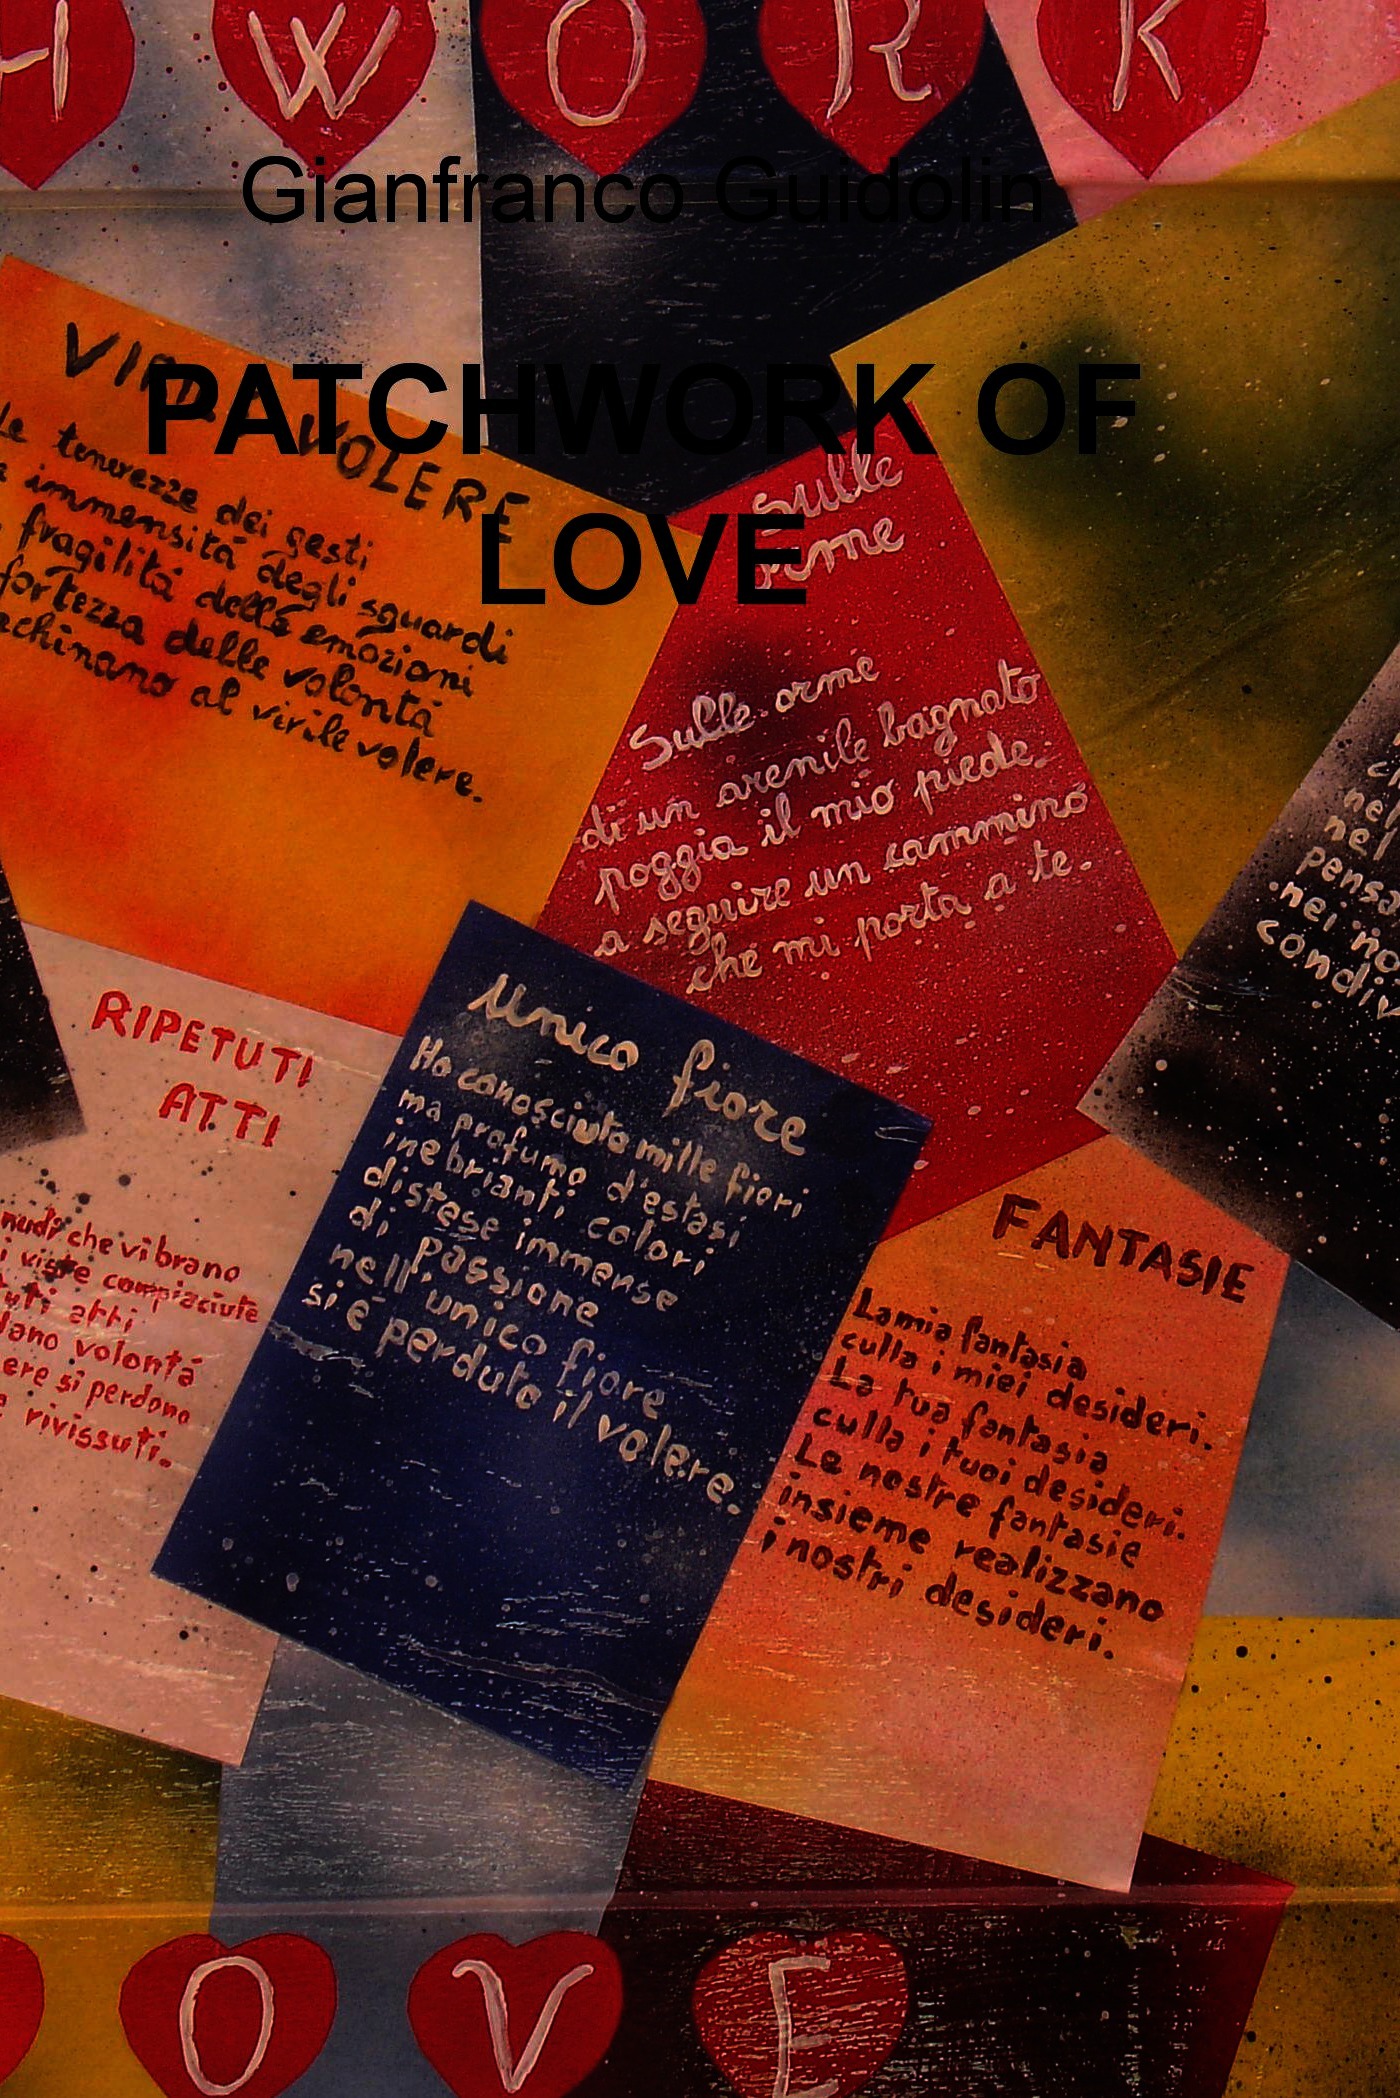 H W O R K
Gianfranco Guidolin
PATCHWORK OF
LOVE
VIRILE VOLERE
Le tenerezze dei gesti
immensitá degli sguardi
fragilitá delle emozioni
fortezza delle volontá
achinano al virile volere.
Sulle
orme
Sulle orme
di un arenile bagnato
poggia il mio piede.
a seguire un cammino
che mi porta a te.
nel
nel
pens
nei mo
condiv
RIPETUTI
ATTI
nudi che vibrano
i viste compiaciute
uti atti
dano volontá
ere si perdono
e rivissuti.
Unico fiore
Ho conosciuto mille fiori
ma profumo d'estasi
inebrianti colori
distese immense
di passione
nell'unico fiore
si é perduto il volere.
FANTASIE
La mia fantasia
culla i miei desideri.
La tua fantasia
culla i tuoi desideri.
Le nostre fantasie
insieme realizzano
i nostri desideri.
O V E